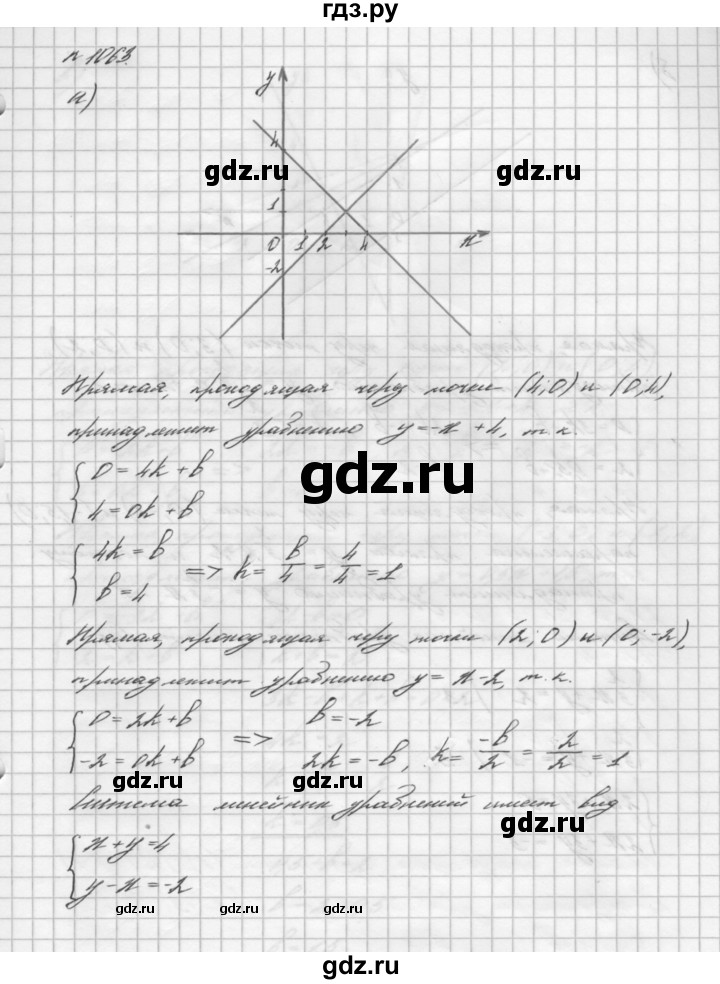 гдз.ру
n 1063.
а)
y
4
1
0 1 2 4 x
-2
gdz.ru gdz.ru
Прямая, проходящая через точки (4;0) и (0;4),
принадлежит уравнению y=-x+4, т.к.
{ 0=4k+b
4=0k+b
gdz.ru
{ 4k=b
b=4
=> k= b/4 = 4/4 =1
Прямая, проходящая через точки (2;0) и (0;-2),
принадлежит уравнению y=x-2, т.к.
{ 0=2k+b
-2=0k+b
=> b=-2
2k=-b, k= -b/2 = 2/2 =1
gdz.ru gdz.ru
Система линейних уравнений имеет вид
gdz.ru
{ x+y=4
y-x=-2
gdz.ru gdz.ru gdz.ru gdz.ru
gdz.ru